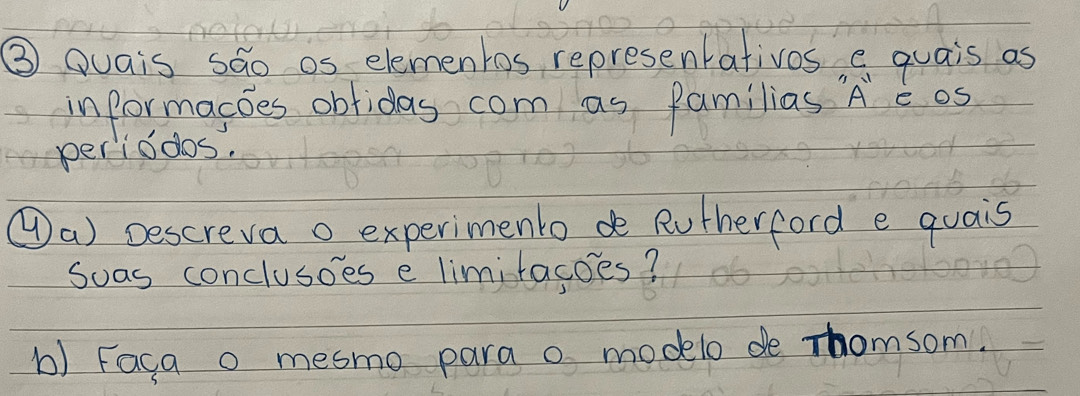 ③ Quais são os elementos representativos e quais as
informações obtidas com as famílias "A" e os
periódos.
④ a) Descreva o experimento de Rutherford e quais
suas conclusões e limitações?
b) Faça o mesmo para o modelo de Thomsom.